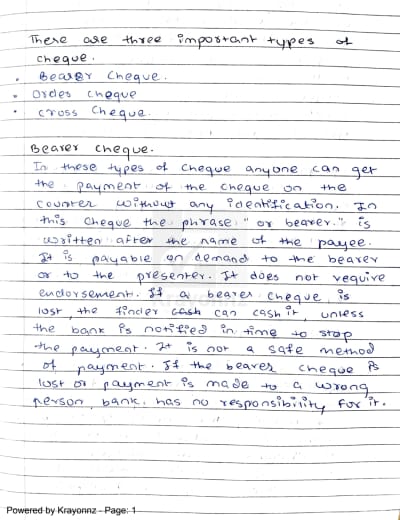 There are three important types of
cheque.
• Bearer Cheque.
• Order cheque
• Cross Cheque.
Bearer cheque.
In these types of cheque anyone can get
the payment of the cheque on the
counter without any identification. In
this cheque the phrase "or bearer." is
written after the name of the payee.
It is payable on demand to the bearer
or to the presenter. It does not require
endorsement. If a bearer cheque is
lost, the finder cash can cash it, unless
the bank is notified in time to stop
the payment. It is not a safe method
of payment. If the bearer cheque is
lost or payment is made to a wrong
person, bank, has no responsibility for it.
Powered by Krayonnz - Page: 1